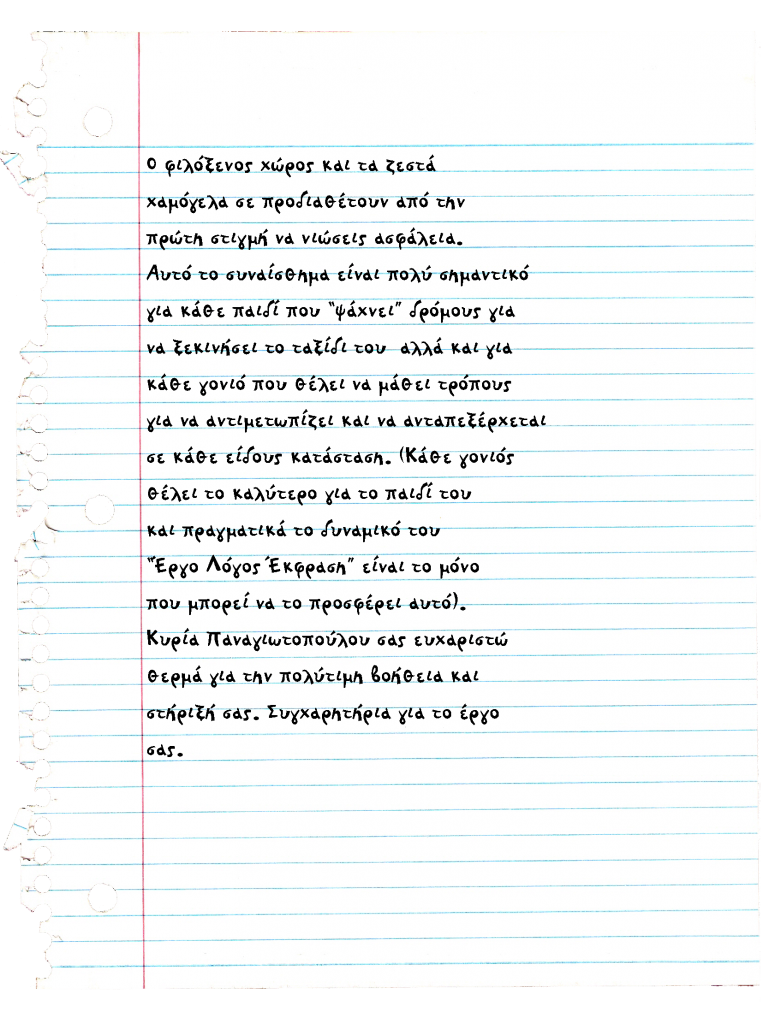 Ο φιλόξενος χώρος και τα ζεστά
χαμόγελα σε προδιαθέτουν από την
πρώτη στιγμή να νιώσεις ασφάλεια.
Αυτό το συναίσθημα είναι πολύ σημαντικό
για κάθε παιδί που "ψάχνει" δρόμους για
να ξεκινήσει το ταξίδι του αλλά και για
κάθε γονιό που θέλει να μάθει τρόπους
για να αντιμετωπίζει και να ανταπεξέρχεται
σε κάθε είδους κατάσταση. (Κάθε γονιός
θέλει το καλύτερο για το παιδί του
και πραγματικά το δυναμικό του
"Έργο Λόγος Έκφραση" είναι το μόνο
που μπορεί να το προσφέρει αυτό).
Κυρία Παναγιωτοπούλου σας ευχαριστώ
θερμά για την πολύτιμη βοήθεια και
στήριξή σας. Συγχαρητήρια για το έργο
σας.